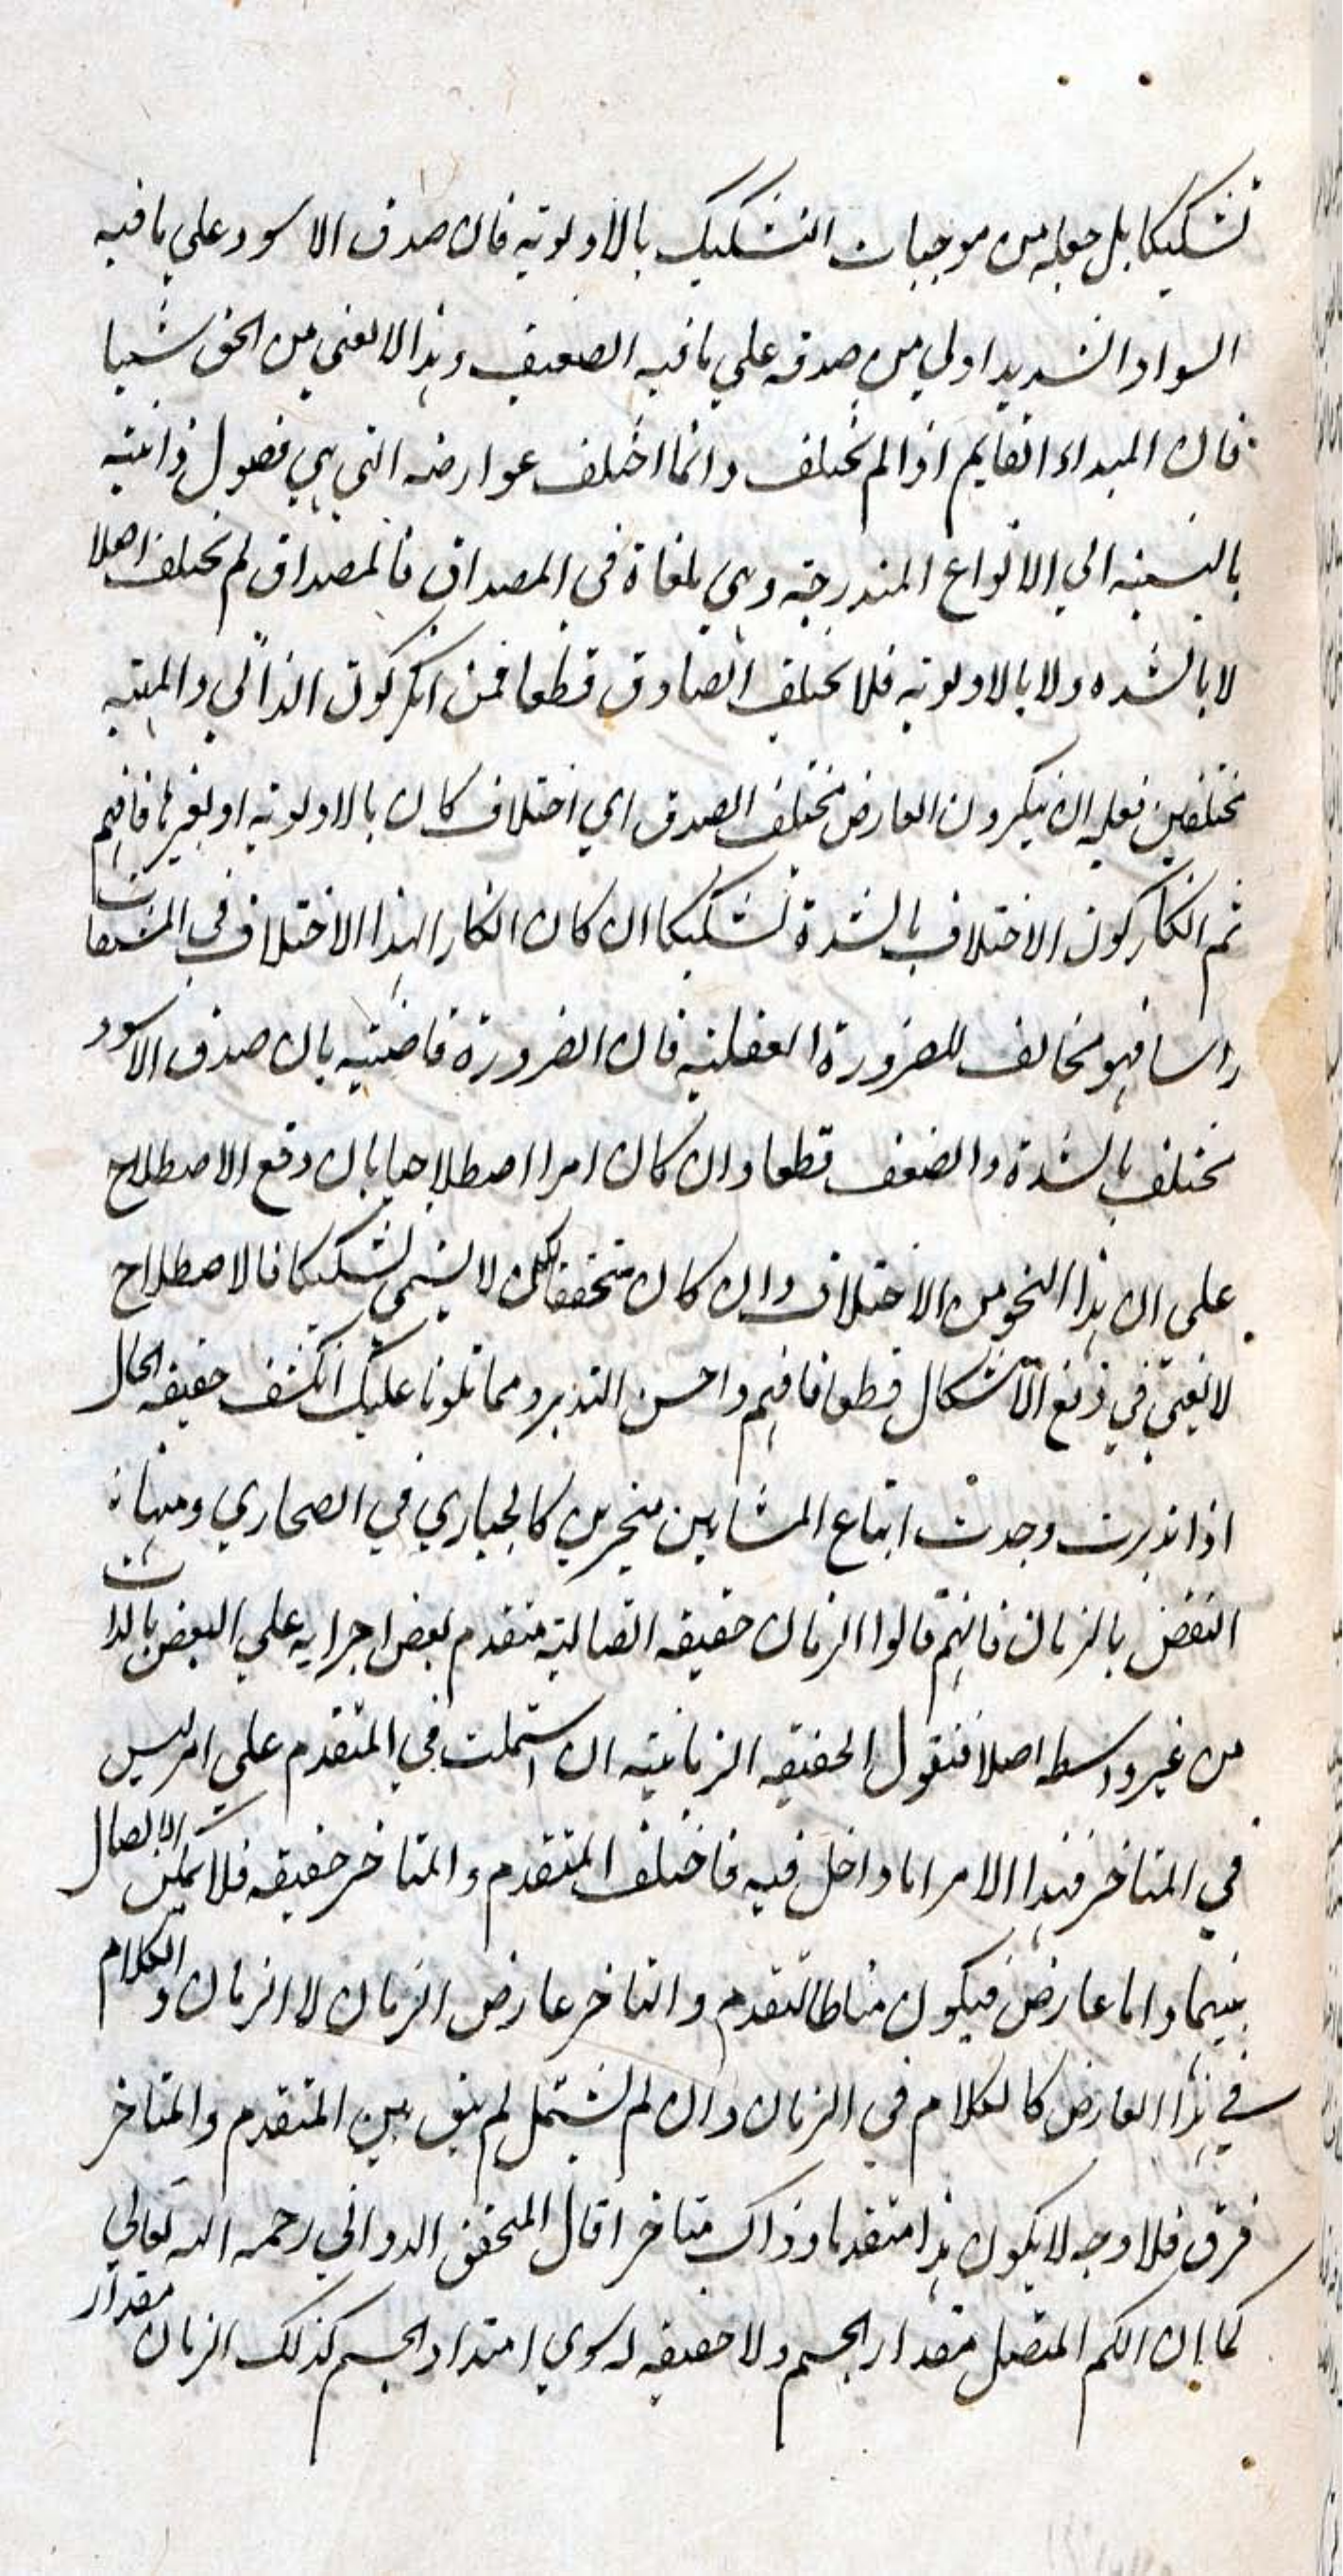 تشكيكا بل جعله من موجبات التشكيك بالاولوية فان صدق الاسود علي ما فيه
السواد الشديد اولي من صدقه علي ما فيه الضعيف وهذا لا يغني من الحق شيئا
فان المبداء القايم اذا لم يختلف وانما اختلف عوارضه التي هي فصول ذاتية
بالنسبة الي الانواع المندرجة وهي ملغاة في المصداق فالمصداق لم يختلف اصلا
لا بالشده ولا بالاولوية فلا يختلف الصادق قطعا فمن انكر كون الذاتي والمهية
مختلفين فعليه ان ينكر ون العارض مختلف الصدق اي اختلاف كان بالاولوية او بغيرها فافهم
ثم انكار كون الاختلاف بالشدة تشكيكا ان كان انكارا لهذا الاختلاف في المشتقات
راسا فهو مخالف للضرورة العقلية فان الضرورة قاضية بان صدق الاسود
مختلف بالشدة والضعف قطعا وان كان امرا اصطلاحيا بان وقع الاصطلاح
علي ان هذا النحو من الاختلاف وان كان متحققا لكن لا يسمي تشكيكا فالاصطلاح
لا يغني في دفع الاشكال قطعا فافهم واحسن التدبر ومما تلونا عليك انكشف حقيقه الحال
اذا تدبرت وجدت اتباع المشايين متحيرين كالحياري في الصحاري ومنها
النقض بالزمان فانهم قالوا الزمان حقيقه اتصالية متقدم بعض اجزايه علي البعض بالذات
من غير واسطه اصلا فنقول الحقيقه الزمانية ان اشتملت في المتقدم علي امر ليس
في المتاخر فهذا الامر اما داخل فيه فاختلف المتقدم والمتاخر حقيقه فلا يمكن الاتصال
بينهما واما عارض فيكون مناط التقدم والتاخر عارض الزمان لا الزمان والكلام
في هذا العارض كالكلام في الزمان وان لم يشتمل لم يبق بين المتقدم والمتاخر
فرق فلا وجه لا يكون هذا متقدما وذاك متاخرا قال المحقق الدواني رحمه الله تعالي
كما ان الكم المتصل مقدار الجسم ولا حقيقه له سوي امتداد الجسم كذلك الزمان مقدار